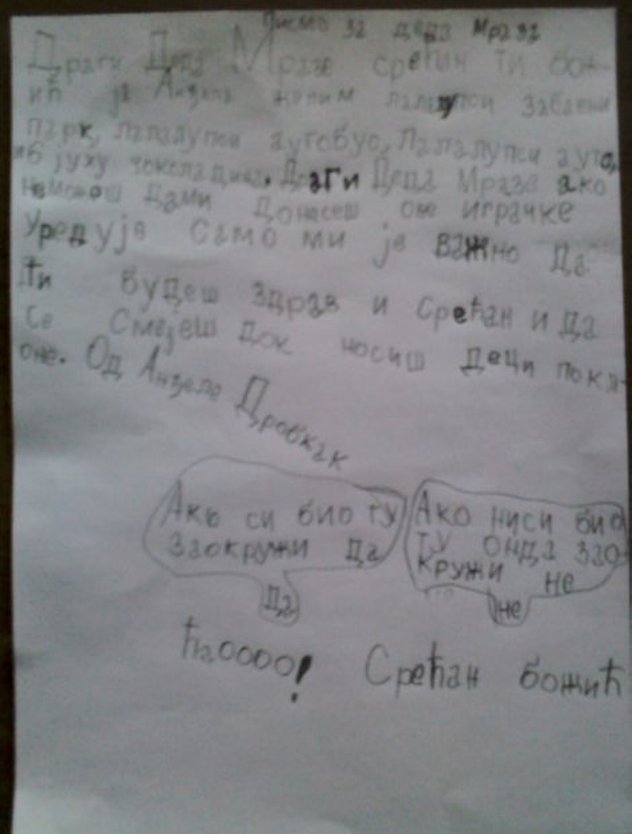 Писмо за деда мраза
Драги Деда Мразе срећан ти бож-
ић ја Анђела желим лалалупси забавни
парк, лалалупси аутобус, лалалупси ауто,
јуху чоколадица. Драги Деда Мразе ако
неможеш дами донесеш ове играчке
Уреду је само ми је важно да
ти будеш здрав и срећан и да
се смејеш док носиш деци покл-
оне. Од Анђеле
Ако си био ту
заокружи да
да
Ако ниси био
ту онда зао-
кружи не
не
ћаоооо! Срећан божић